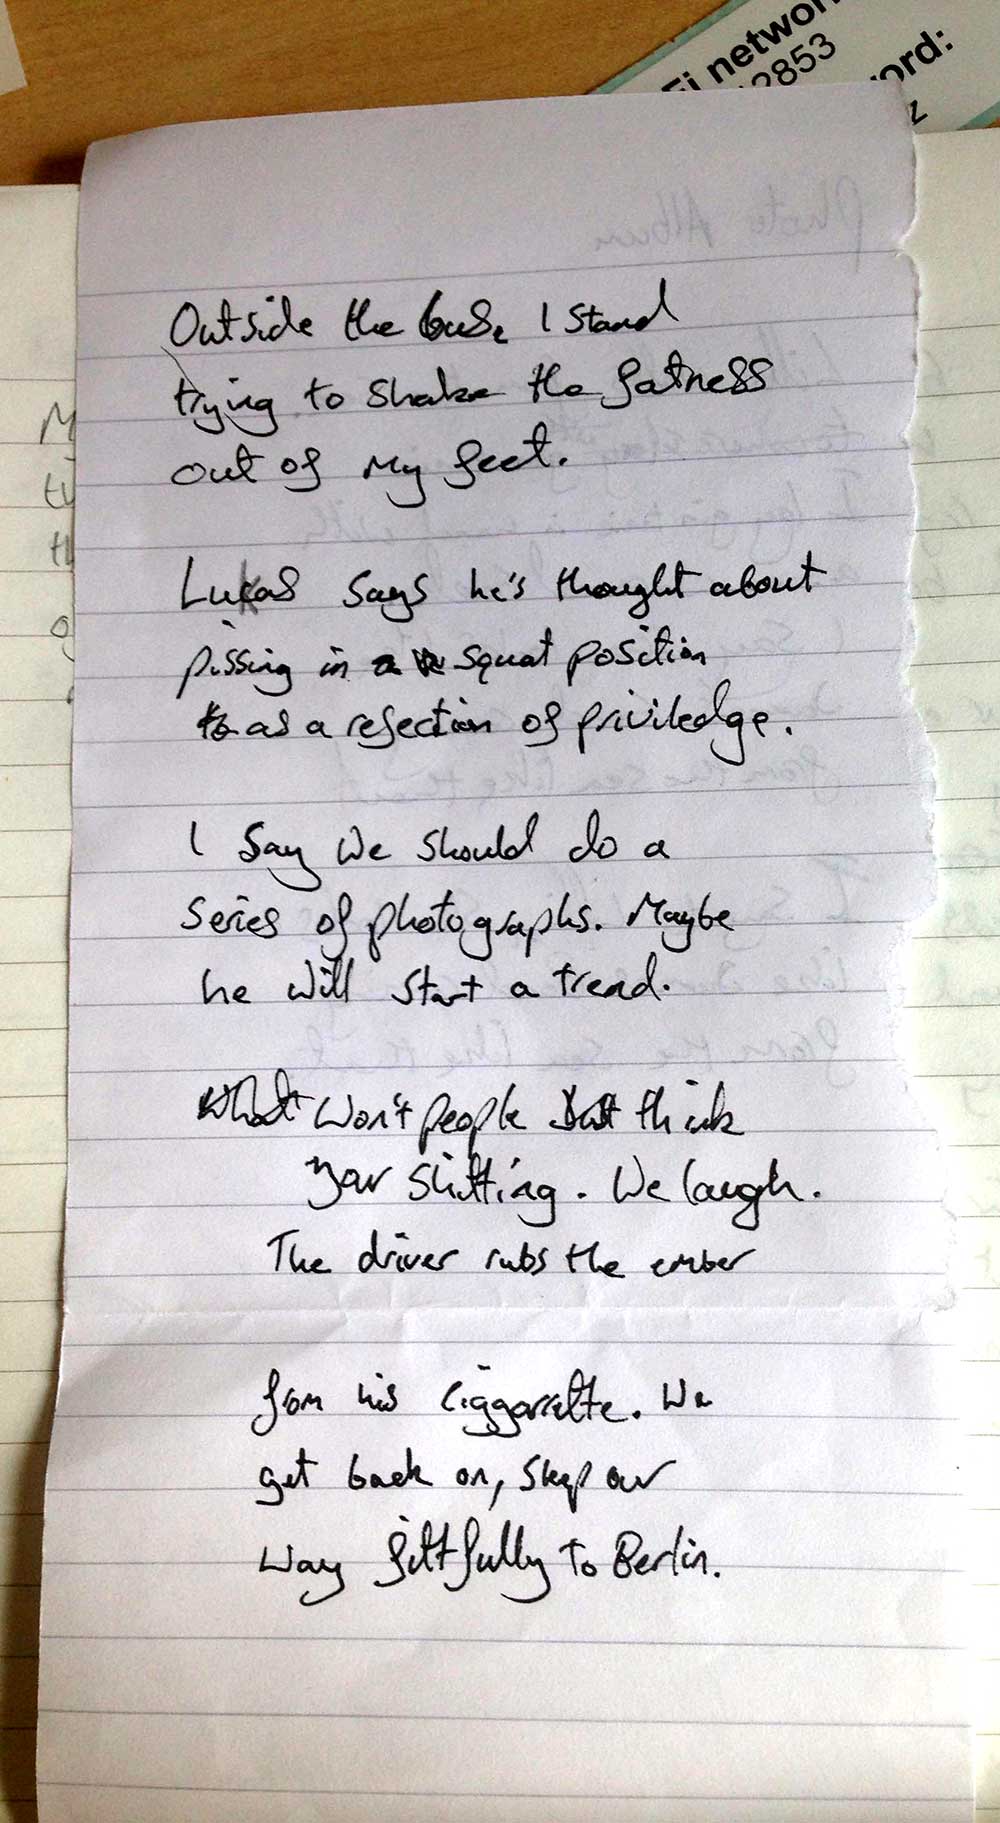 Fi network
2853
ord:
z
Photo Album
Outside the bus, I stand
trying to shake the fatness
out of my feet.
Lukas says he's thought about
pissing in a squat position
to as a rejection of priviledge.
I say we should do a
series of photographs. Maybe
he will start a trend.
What won't people think
your shitting. We laugh.
The driver rubs the ember
from his ciggarrette. We
get back on, sleep our
way fittfully to Berlin.